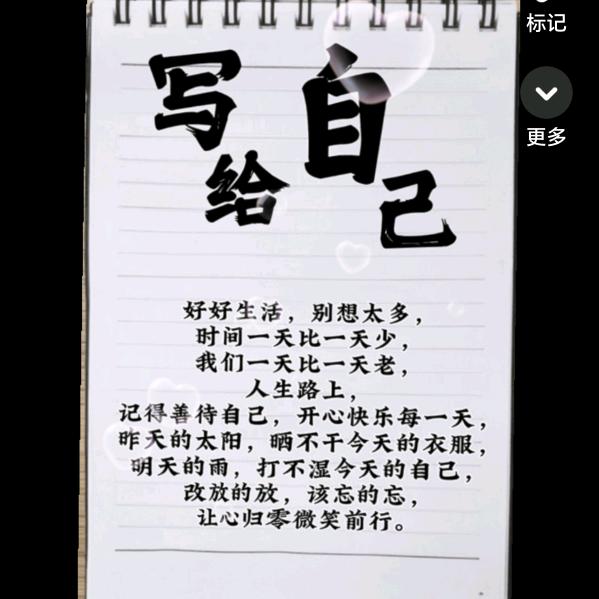 标记
更多
写给自己
好好生活，别想太多，
时间一天比一天少，
我们一天比一天老，
人生路上，
记得善待自己，开心快乐每一天，
昨天的太阳，晒不干今天的衣服，
明天的雨，打不湿今天的自己，
改放的放，该忘的忘，
让心归零微笑前行。